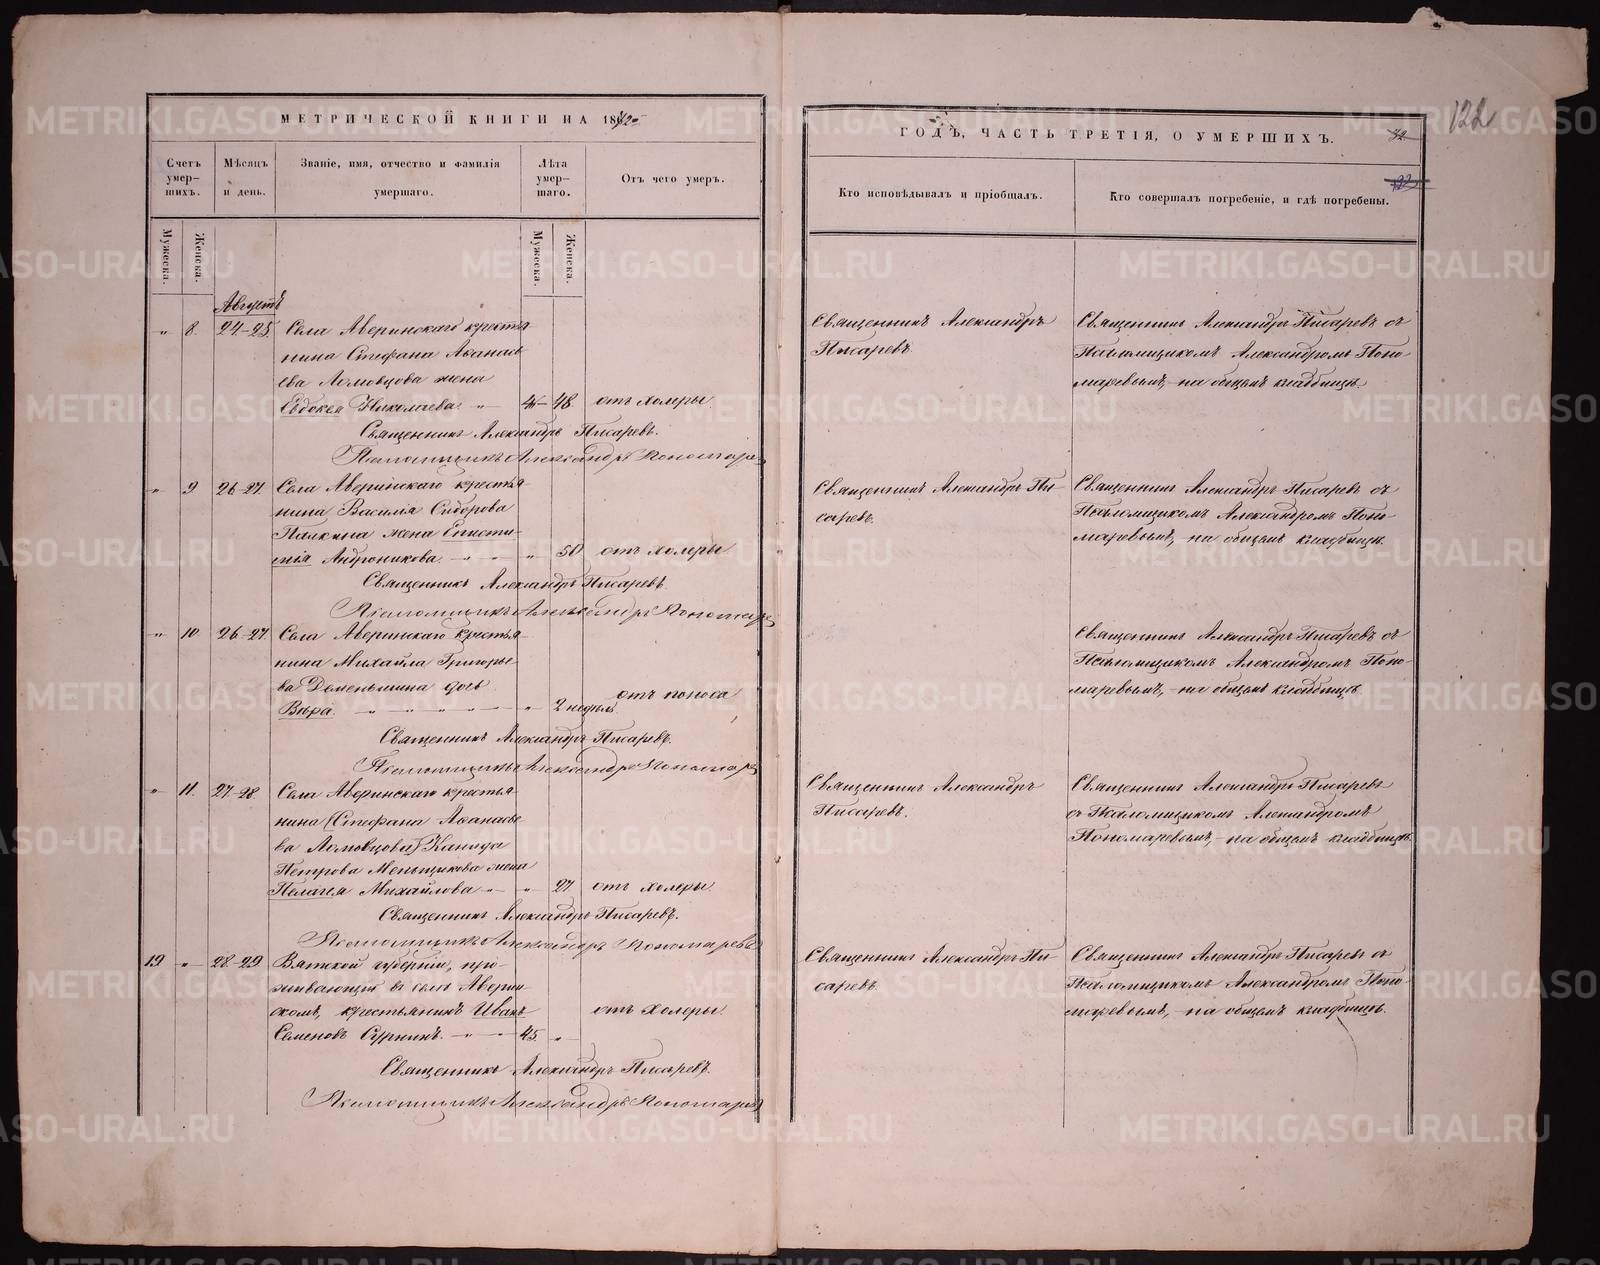 МЕТРИЧЕСКОЙ КНИГИ НА 18
ГОДЪ, ЧАСТЬ ТРЕТІЯ, О УМЕРШИХЪ.
122
Счетъ умер-шихъ.
Мѣсяцъ и день.
Званіе, имя, отчество и фамилія умершаго.
Лѣта умер-шаго.
Отъ чего умеръ.
Кто исповѣдывалъ и пріобщалъ.
Кто совершалъ погребеніе, и гдѣ погребены.
Мужеска.
Женска.
Мужеска.
Женска.
Августъ
„ 8. 24-25. Села Аверинскаго крестья-
нина Стефана Аѳанась
ева Ломовцова жена
Евдокея Николаева „ — 48 отъ холеры.
Священникъ Александръ Писаревъ.
Псаломщикъ Александръ Пономарев
Священникъ Александръ
Писаревъ.
Священникъ Александръ Писаревъ съ
Псаломщикомъ Александромъ Поно-
маревымъ, на общемъ кладбищѣ.
„ 9 26-27. Села Аверинскаго крестья-
нина Василія Сидорова
Палкина жена Еписти-
мія Андроникова. „ 50 отъ холеры
Священникъ Александръ Писаревъ.
Псаломщикъ Александръ Пономарев
Священникъ Александръ Пи-
саревъ.
Священникъ Александръ Писаревъ съ
Псаломщикомъ Александромъ Поно-
маревымъ, на общемъ кладбищѣ.
„ 10. 26-27. Села Аверинскаго крестья-
нина Михайла Григорье-
ва Деменьшина дочь
Вѣра. „ 2 недѣли отъ поноса
Священникъ Александръ Писаревъ.
Псаломщикъ Александръ Пономарев
Священникъ Александръ Писаревъ съ
Псаломщикомъ Александромъ Поно-
маревымъ, на общемъ кладбищѣ.
„ 11. 27-28. Села Аверинскаго крестья-
нина (Стефана Аѳанасье-
ва Ломовцова)
Петрова Меньщикова жена
Пелагея Михайлова „ „ 27 отъ холеры.
Священникъ Александръ Писаревъ.
Псаломщикъ Александръ Пономаревъ
Священникъ Александръ
Писаревъ.
Священникъ Александръ Писаревъ
съ Псаломщикомъ Александромъ
Пономаревымъ, на общемъ кладбищѣ.
19 „ 28-29. Вятской губерніи, про-
живающій въ селѣ Аверин-
скомъ, крестьянинъ Иванъ
Семеновъ 45. „ отъ холеры.
Священникъ Александръ Писаревъ.
Псаломщикъ Александръ Пономарев
Священникъ Александръ Пи-
саревъ.
Священникъ Александръ Писаревъ съ
Псаломщикомъ Александромъ Поно-
маревымъ, на общемъ кладбищѣ.
METRIKI.GASO-URAL.RU